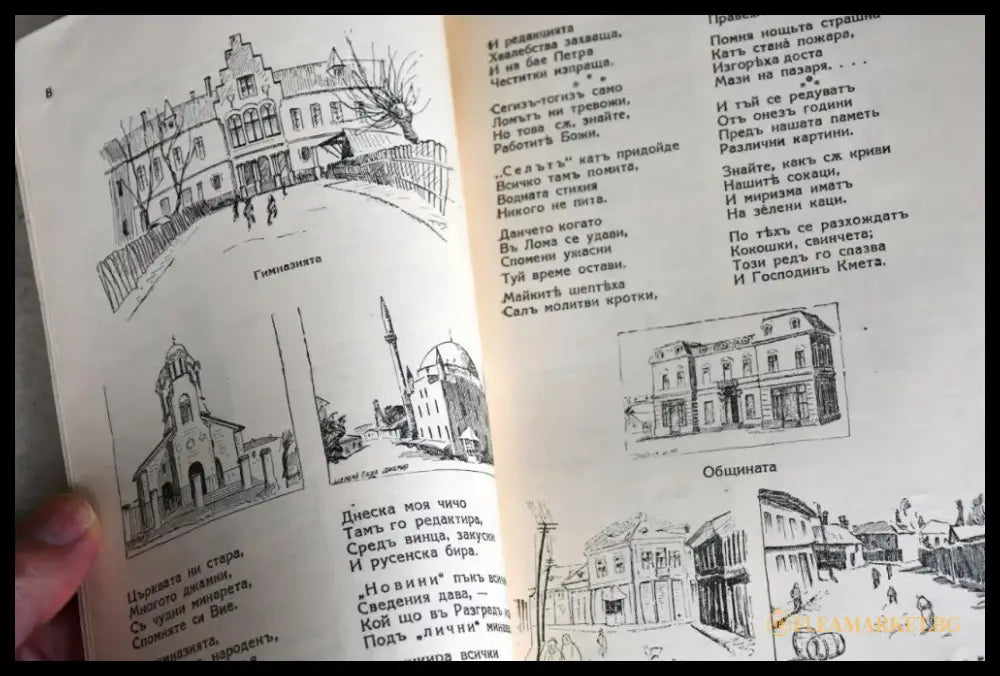 8
Гимназията
Църквата ни стара,
Многото джамии,
Съ чудни минарета,
Спомняте си Вие.
народенъ,
Днеска моя чичо
Тамъ го редактира,
Средъ винца, закуски
И русенска бира.
„Новини“ пъкъ
Сведения дава, —
Кой що въ Разградъ
Подъ „лични“
всички
И редакцията
Хвалебства захваща,
И на бае Петра
Честитки изпраща.
* * *
Сегизъ-тогизъ само
Ломътъ ни тревожи,
Но това сѫ, знайте,
Работитѣ Божи.
„Сельтъ“ катъ придойде
Всичко тамъ помита,
Водната стихия
Никого не пита.
Данчето когато
Въ Лома се удави,
Спомени ужасни
Туй време остави.
Майкитѣ шептѣха
Салъ молитви кротки,
Помня нощьта страшна
Катъ стана̀ пожара,
Изгорѣха доста
Мази на пазаря. . . .
* * *
И тъй се редуватъ
Отъ онезъ години
Предъ нашата паметь
Различни картини.
Знайте, какъ сѫ криви
Нашитѣ сокаци,
И миризма иматъ
На зелени каци.
По тѣхъ се разхождатъ
Кокошки, свинчета;
Този редъ го спазва
И Господинъ Кмета.
Общината
FLEAMARKET.BG